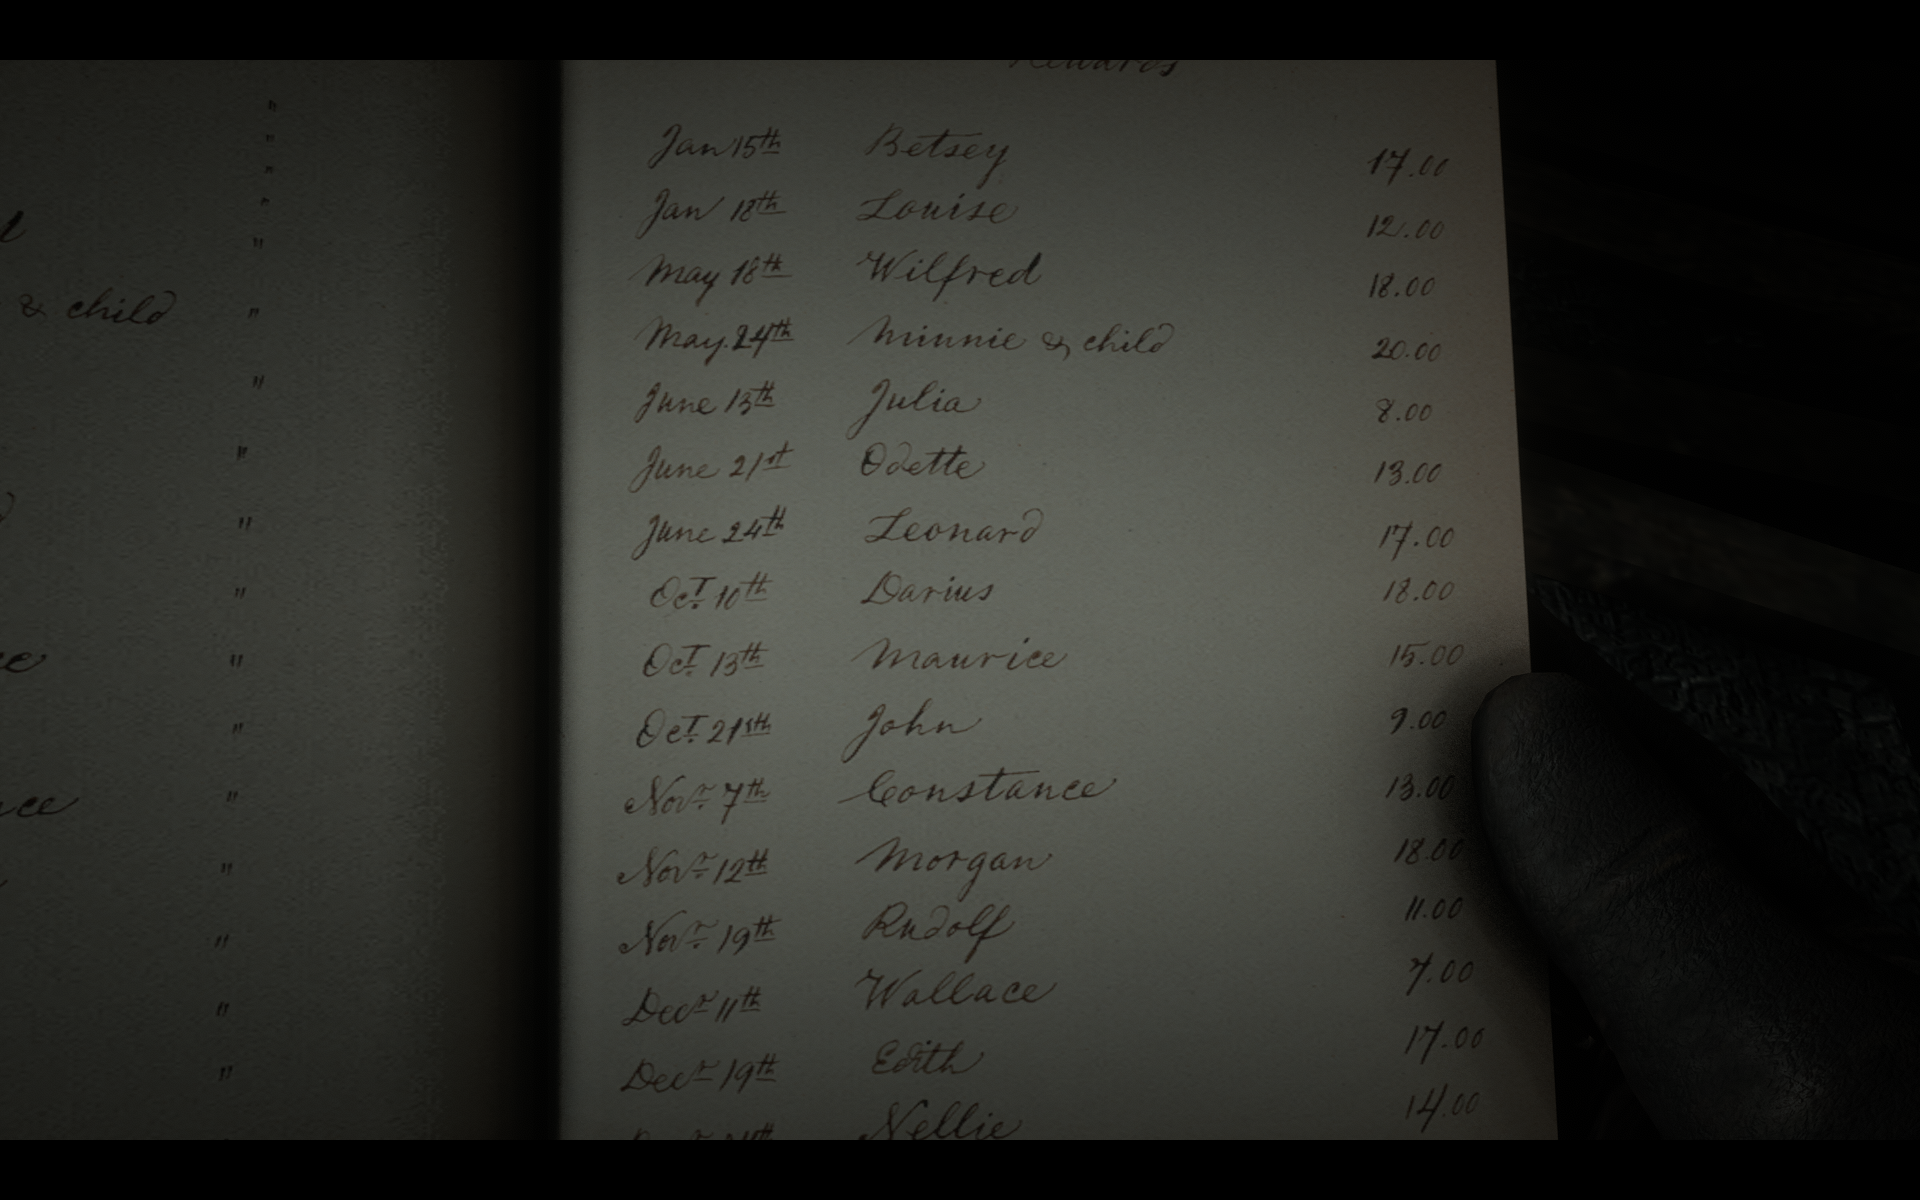 Rewards
"
"
"
"
"
& child "
"
"
"
"
"
"
"
"
"
"
"
Jan 15th Betsey 17.00
Jan 18th Louise 12.00
May 18th Wilfred 18.00
May. 24th Minnie & child 20.00
June 13th Julia 8.00
June 21st Odette 13.00
June 24th Leonard 17.00
Oct. 10th Darius 18.00
Oct. 13th Maurice 15.00
Oct. 21sth John 9.00
Novr. 7th Constance 13.00
Novr. 12th Morgan 18.00
Novr. 19th Rudolf 11.00
Decr. 11th Wallace 7.00
Decr. 19th Edith 17.00
Nellie 14.00